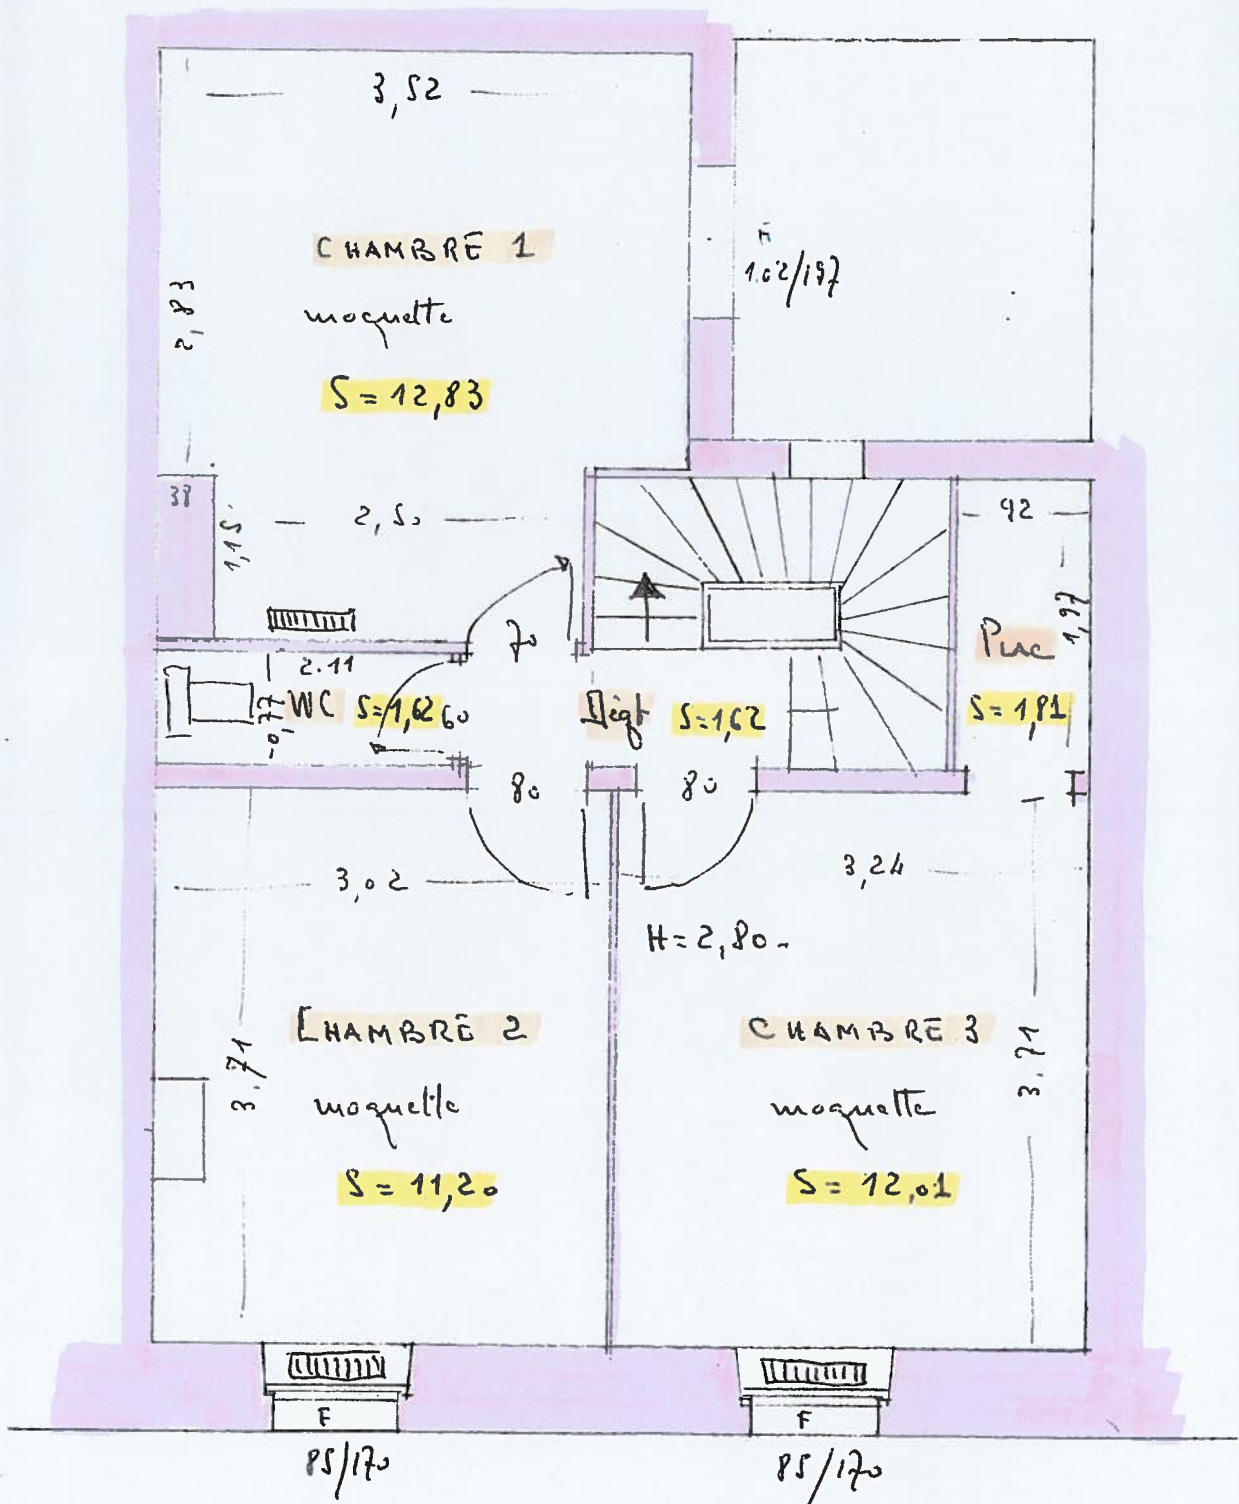 3,52
CHAMBRE 1
moquette
S = 12,83
2,83
F
1.02/197
38
1,15
2,50
92
1,97
70
2.11
0,77
WC S=1,62
60
Dégt S=1,62
PLAC
S=1,81
80
80
3,02
3,24
H = 2,80
CHAMBRE 2
moquette
S = 11,20
3,71
CHAMBRE 3
moquette
S = 12,01
3,71
F
85/170
F
85/170